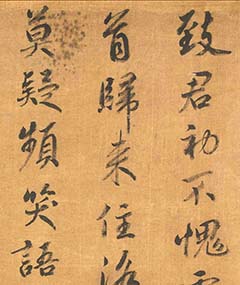 致君初不愧
首歸来住洛
莫疑頻笑語